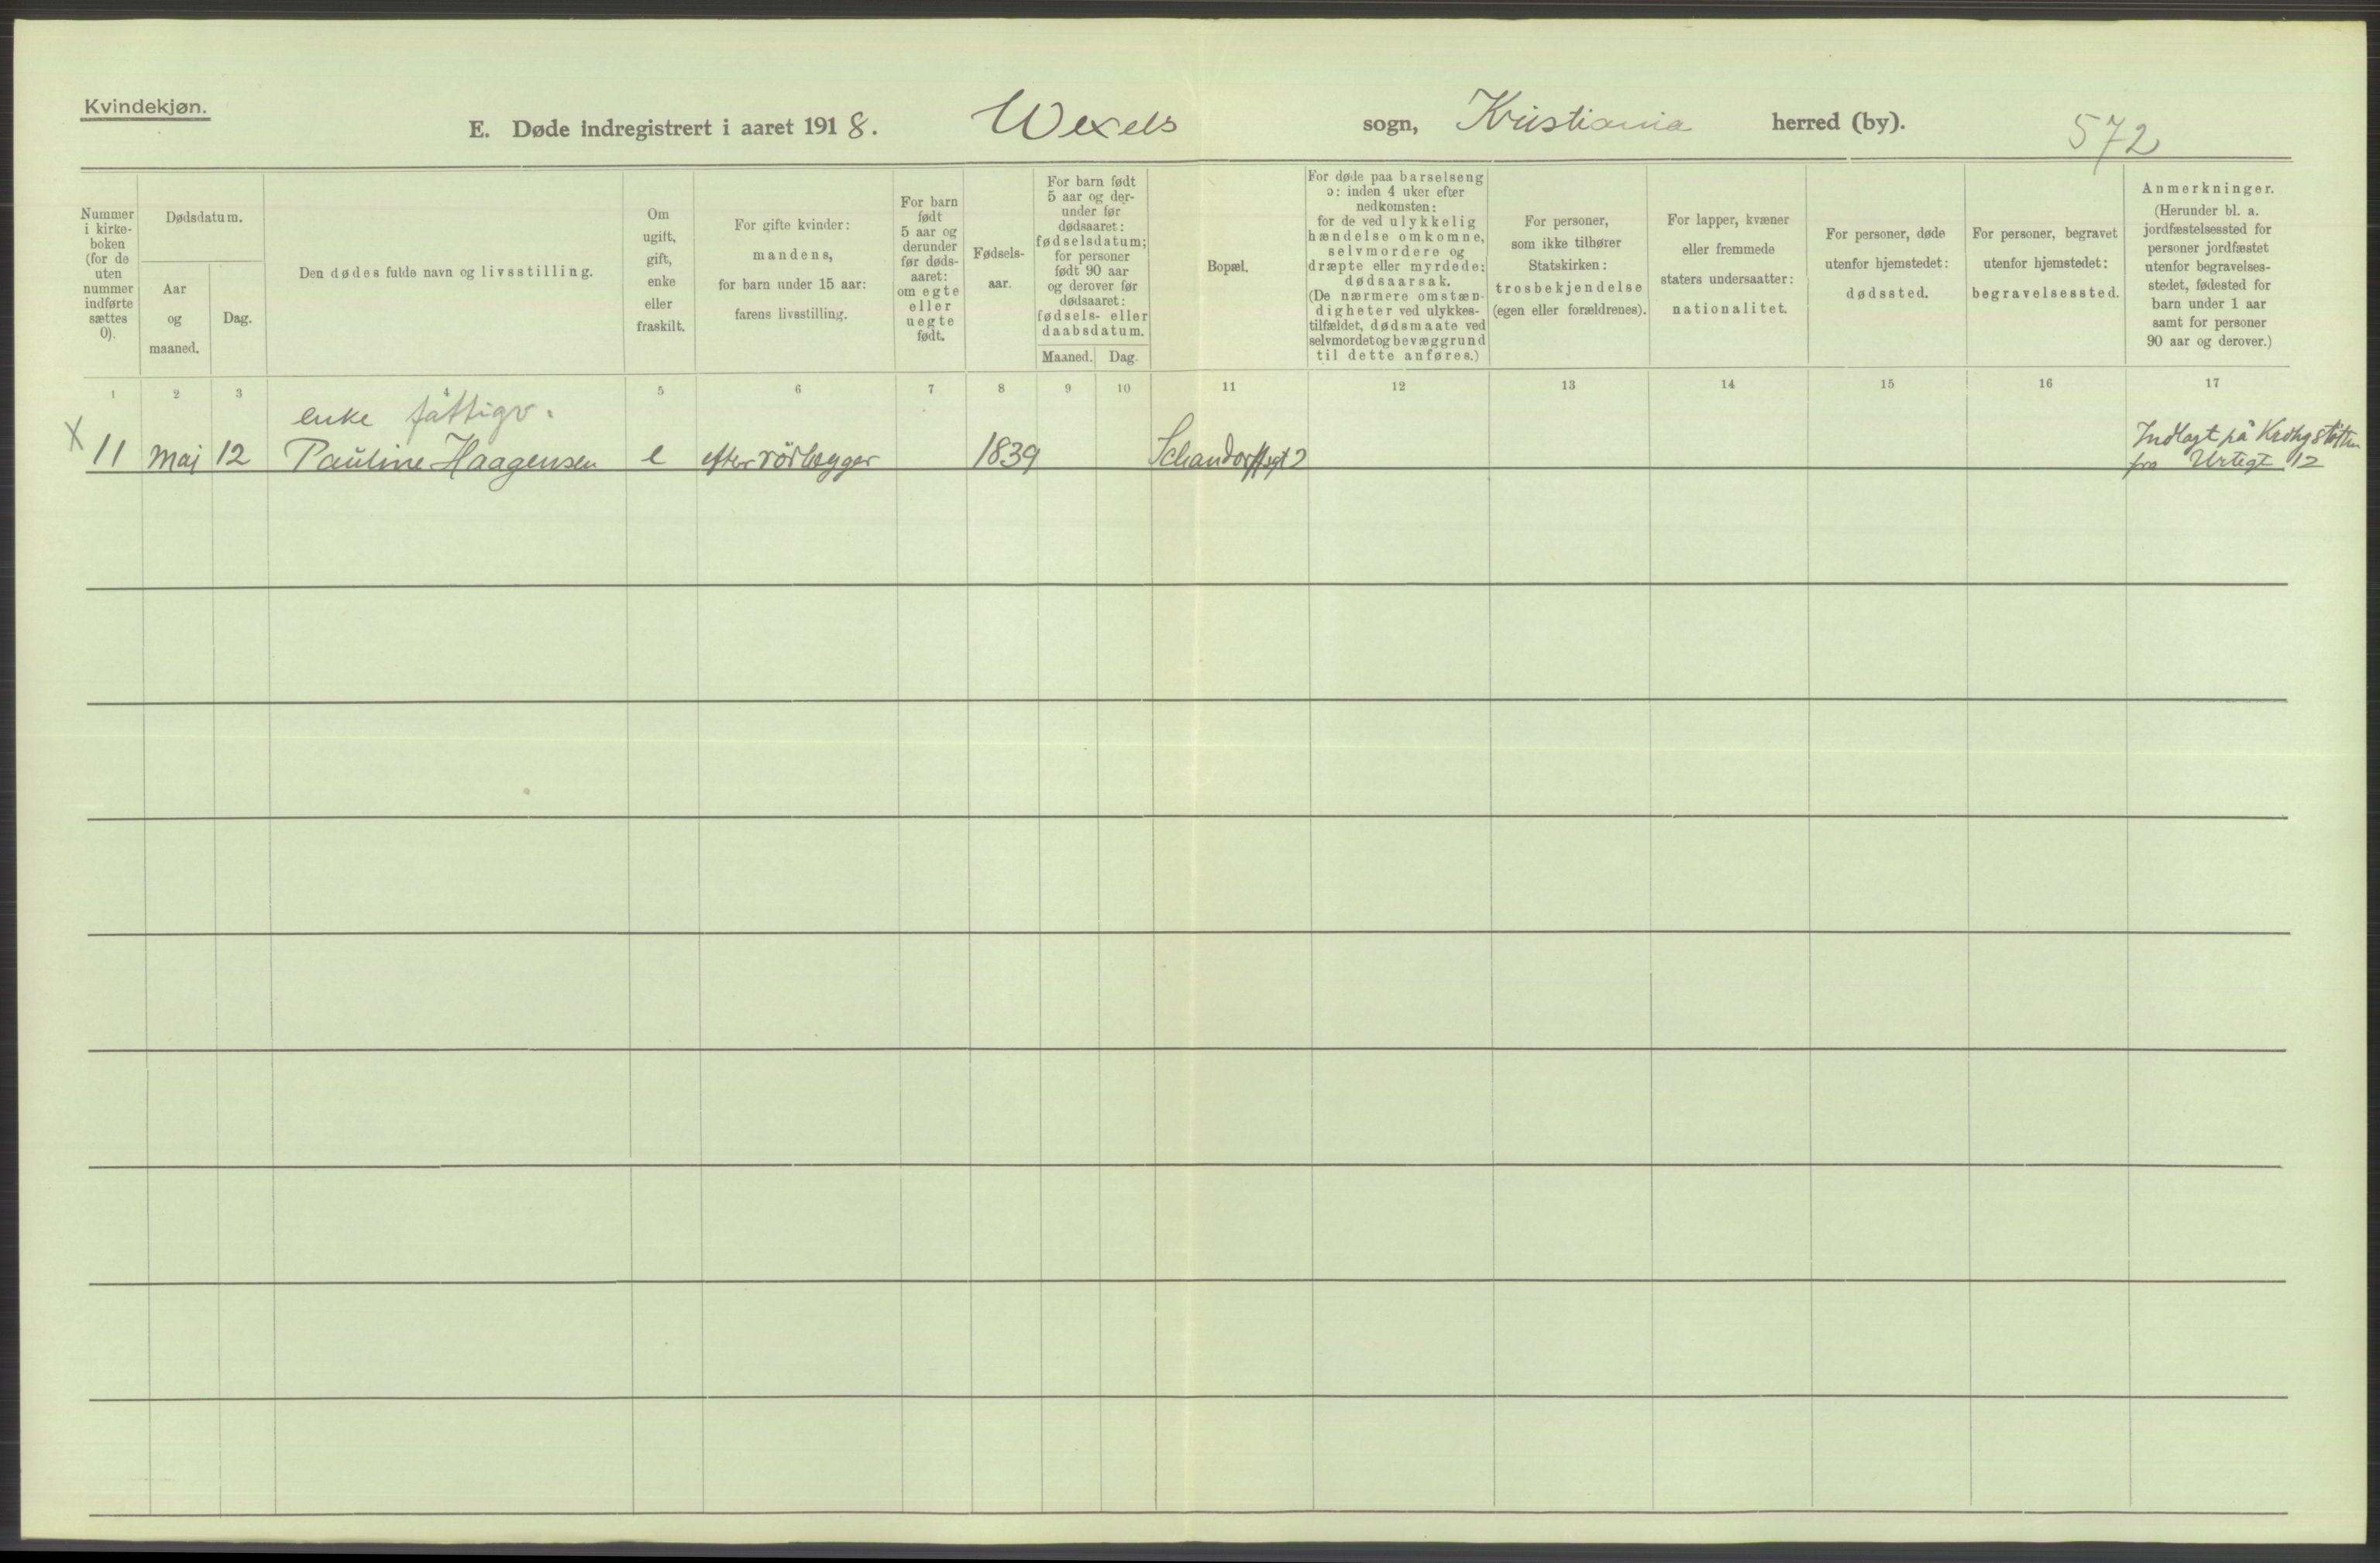 Kvindekjøn.
E. Døde indregistrert i aaret 1918. Wexels sogn, Kristiania herred (by).
572
Nummer
i kirke-
boken
(for de
uten
nummer
indførte
sættes
0).
Dødsdatum.
Aar
og
maaned.
Dag.
Den dødes fulde navn og livsstilling.
Om
ugift,
gift,
enke
eller
fraskilt.
For gifte kvinder:
mandens,
for barn under 15 aar:
farens livsstilling.
For barn
født
5 aar og
derunder
før døds-
aaret:
om egte
eller
uegte
født.
Fødsels-
aar.
For barn født
5 aar og der-
under før
dødsaaret:
fødselsdatum;
for personer
født 90 aar
og derover før
dødsaaret:
fødsels- eller
daabsdatum.
Maaned. Dag.
Bopæl.
For døde paa barselseng
ɔ: inden 4 uker efter
nedkomsten:
for de ved ulykkelig
hændelse omkomne,
selvmordere og
dræpte eller myrdede:
dødsaarsak.
(De nærmere omstæn-
digheter ved ulykkes-
tilfældet, dødsmaate ved
selvmordet og bevæggrund
til dette anføres.)
For personer,
som ikke tilhører
Statskirken:
trosbekjendelse
(egen eller forældrenes).
For lapper, kvæner
eller fremmede
staters undersaatter:
nationalitet.
For personer, døde
utenfor hjemstedet:
dødssted.
For personer, begravet
utenfor hjemstedet:
begravelsessted.
Anmerkninger.
(Herunder bl. a.
jordfæstelsessted for
personer jordfæstet
utenfor begravelses-
stedet, fødested for
barn under 1 aar
samt for personer
90 aar og derover.)
1 2 3 4 5 6 7 8 9 10 11 12 13 14 15 16 17
enke fattigv.
X 11 Mai 12 Pauline Haagensen e efter rörlægger 1839 Schandorffsgt 2
Indlagt på Krohgstötten
fra Urtegt 12